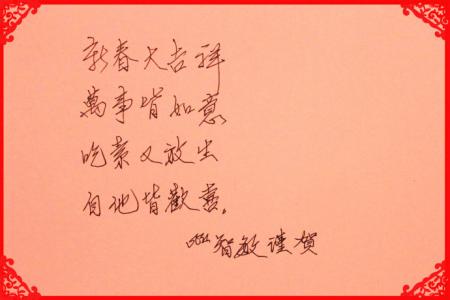 新春大吉祥
萬事皆如意
吃素又放生
自他皆歡喜。
智敏謹賀